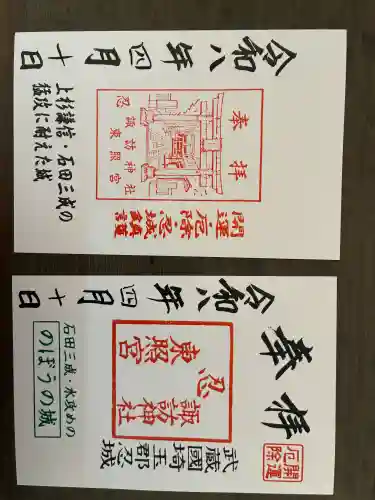 令和八年四月十日
奉拝
忍
諏訪神社
東照宮
開運厄除忍城鎮護
上杉謙信・石田三成の
猛攻に耐えた城
奉拝
開運
厄除
令和八年四月十日
忍
東照宮
諏訪神社
武蔵國埼玉郡忍城
石田三成・水攻めの
のぼうの城